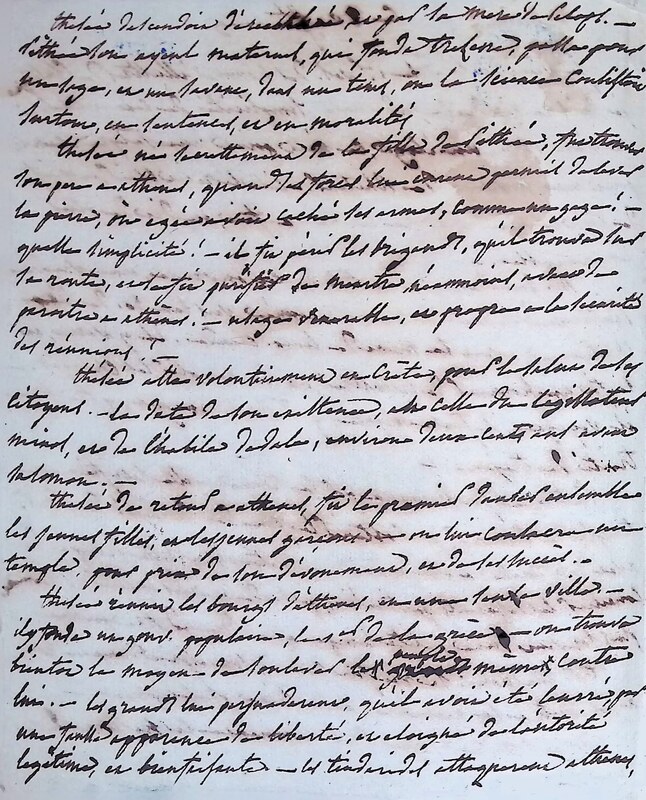 thesée descendoit d'erecthée, et par sa mere de pelops. —
pithée son ayeul maternel, qui fonda trezene, passa pour
un sage, et un savant, dans un tems, où la science consistoit
surtout, en sentences, et en moralités
thesée né secrettement de la fille de pithée, fut trouver
son pere a athenes, quand ses forces lui eurent permis de lever
la pierre, où egée avoit caché ses armes, comme un gage! —
quelle simplicité! — il fit périr les brigands, qu'il trouva sur
sa route, et se fit purifier du meurtre néanmoins, avant de
paroitre a athenes! — usage venerable, et propre a la sureté
des réunions! —
thesée alla volontairement en Crète, pour le salut de ses
citoyens. — la date de son existence, est celle du legislateur
minos, et de l'habile dedale, environ deux cents ans avant
salomon. —
thesée de retour a athenes, fit le premier danser ensemble
les jeunes filles, et les jeunes garçons — on lui consacra un
temple, pour prix de son dévouement, et de ses succès. —
thesée réunit les bourgs d'athenes, en une seule ville. —
il y fonda un gouv. populaire, le 1er de la grèce — on trouva
bientot le moyen de soulever le peuple même contre
lui. — les grands lui persuaderent, qu'il avoit été leurré, par
une fausse apparence de liberté, et eloigné de l'autorité
legitime, et bienfaisante — les tindarides attaquerent athenes,